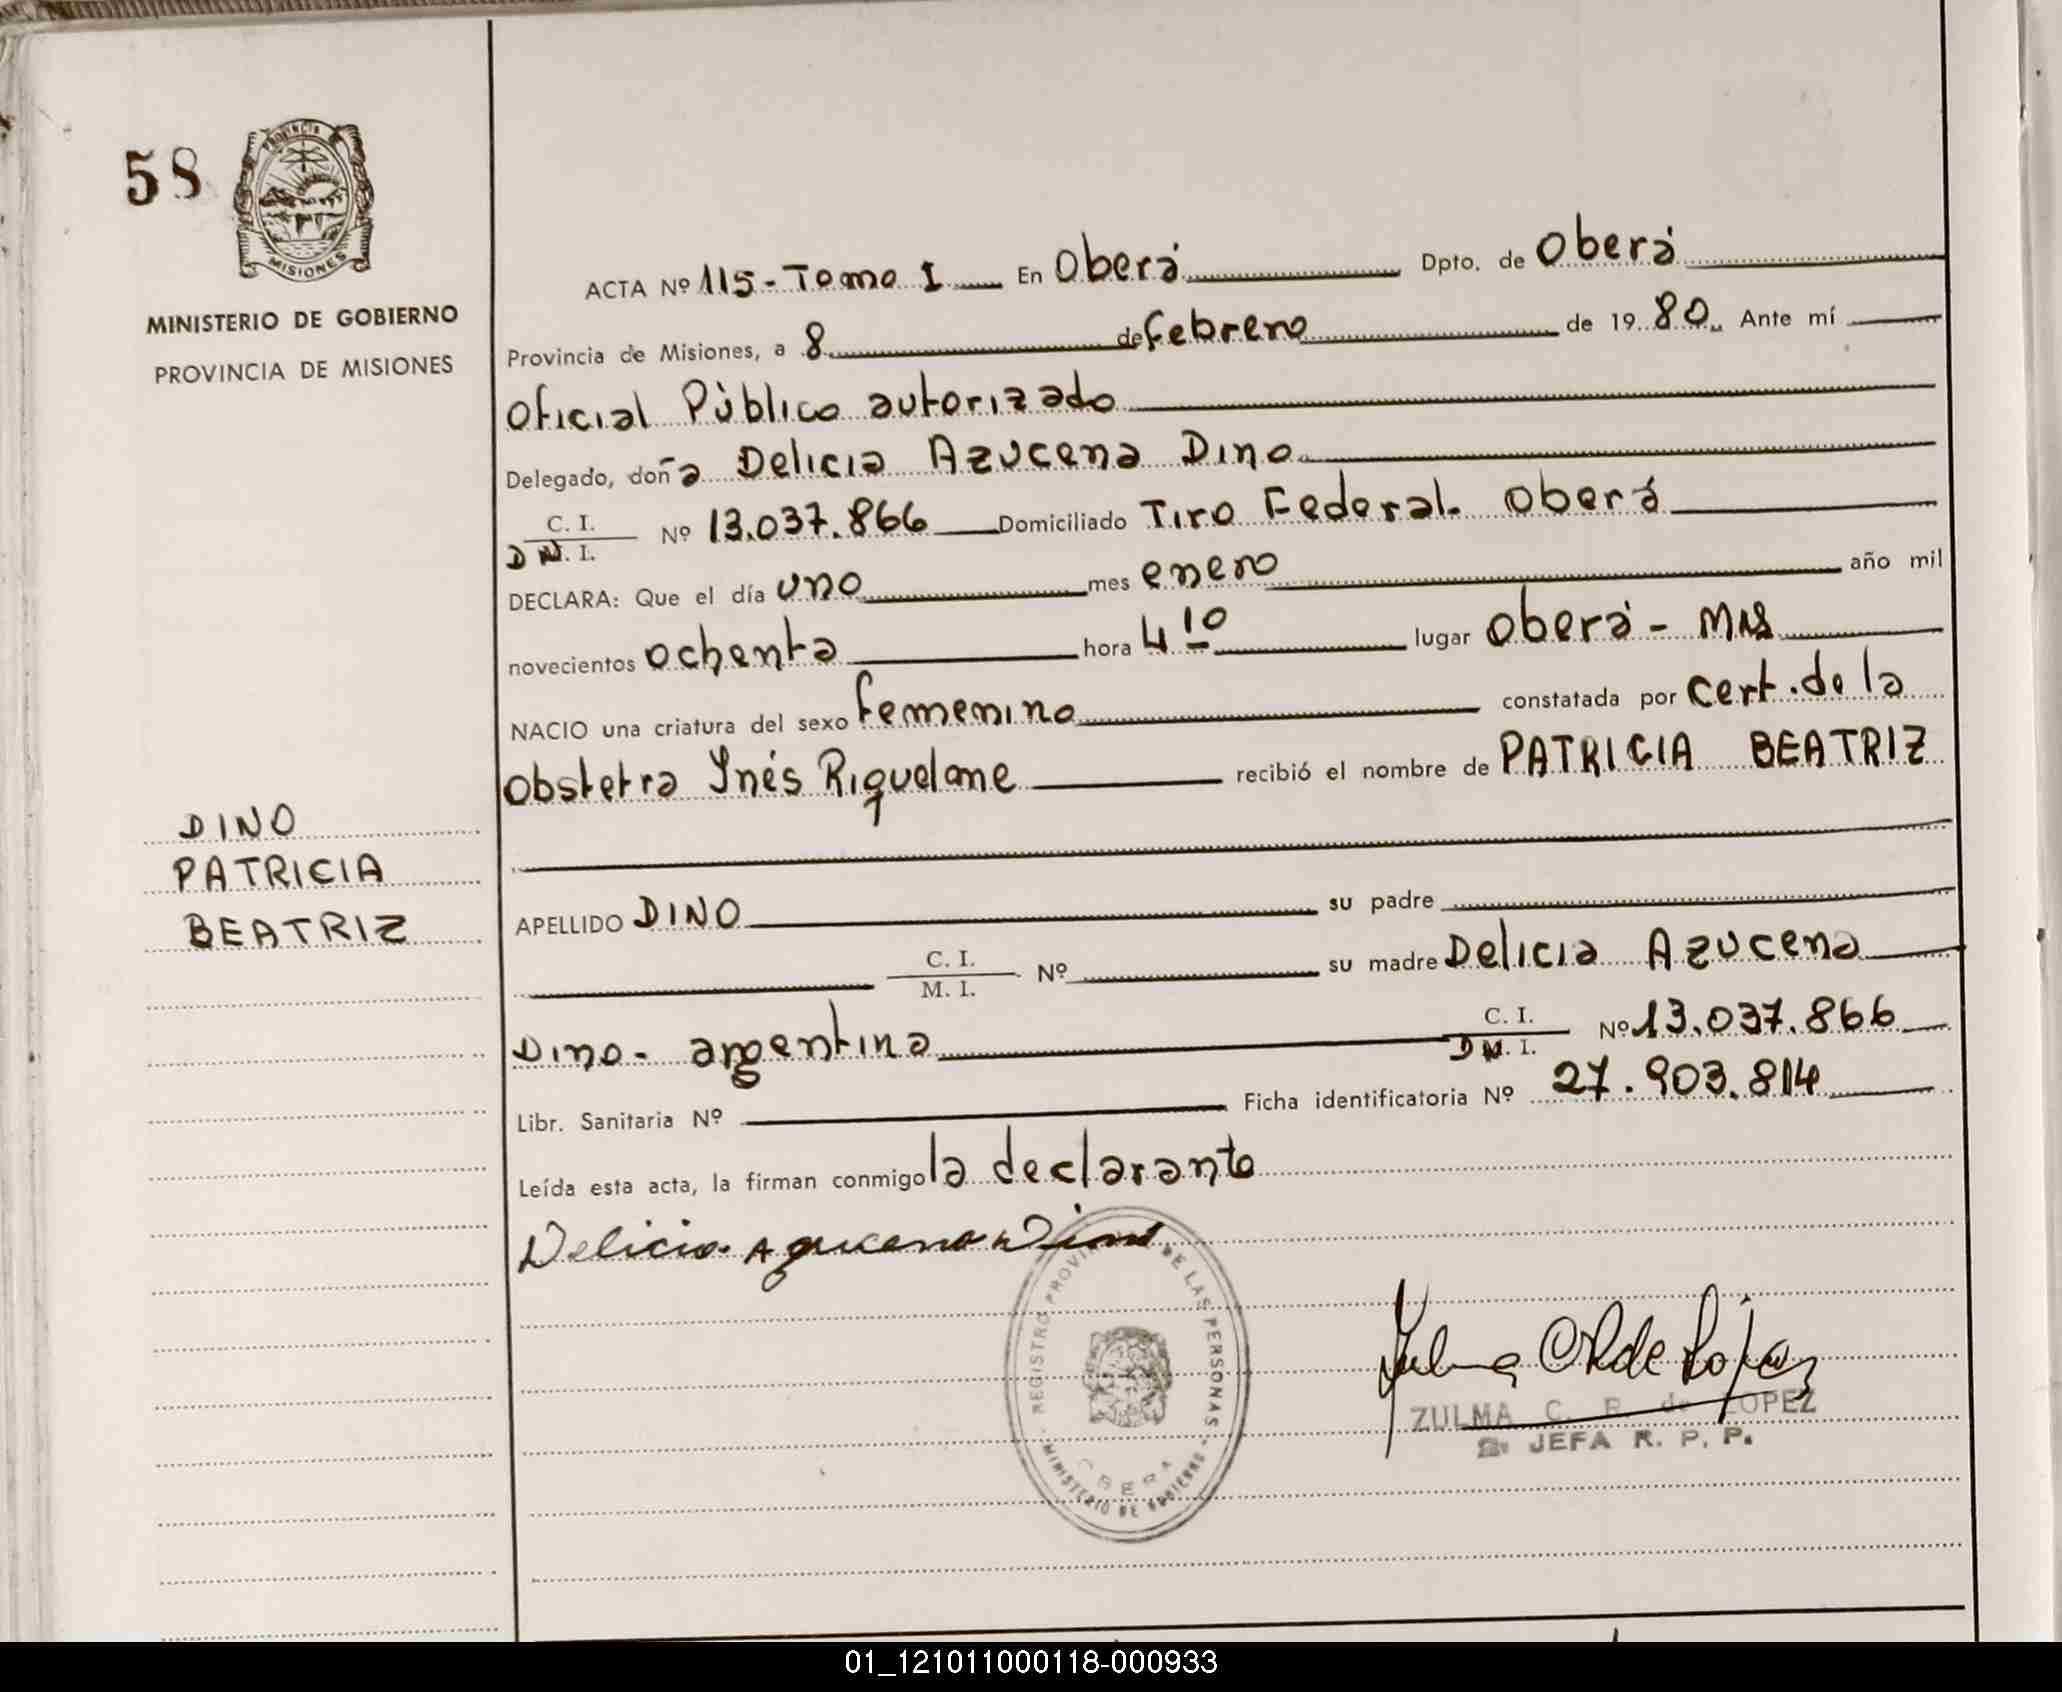 58
PROVINCIA
MISIONES
MINISTERIO DE GOBIERNO
PROVINCIA DE MISIONES
DINO
PATRICIA
BEATRIZ
ACTA Nº 115 - Tomo I En Oberá Dpto. de Oberá
Provincia de Misiones, a 8 de febrero de 1980. Ante mí
Oficial Público autorizado
Delegado, doña Delicia Azucena Dino
C. I. / D N. I. Nº 13.037.866 Domiciliado Tiro Federal. Oberá
DECLARA: Que el día uno mes enero año mil
novecientos ochenta hora 4 10 lugar Oberá - Mns
NACIO una criatura del sexo femenino constatada por cert. de la
Obstetra Inés Riquelme recibió el nombre de PATRICIA BEATRIZ
APELLIDO DINO su padre
C. I. / M. I. Nº su madre Delicia Azucena
Dino - argentina C. I. / D N. I. Nº 13.037.866
Libr. Sanitaria Nº Ficha identificatoria Nº 27.903.814
Leída esta acta, la firman conmigo la declarante
Delicia Azucena Dino
REGISTRO PROVINCIAL DE LAS PERSONAS
MINISTERIO DE GOBIERNO
OBERA
Zulma de Lopez
ZULMA C. R. de LOPEZ
JEFA R. P. P.
01_121011000118-000933